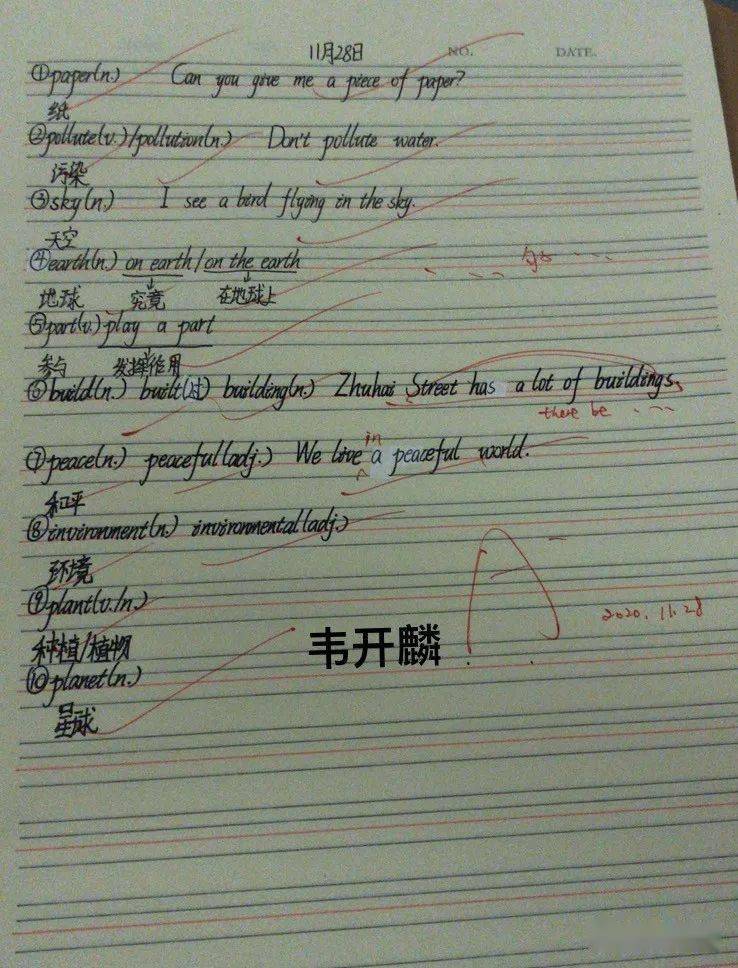 11月28日 NO. DATE.
①paper(n.) Can you give me a piece of paper?
纸
②pollute(v.)/pollution(n.) Don't pollute water.
污染
③sky(n.) I see a bird flying in the sky.
天空
④earth(n.) on earth/on the earth
地球 究竟 在地球上
⑤part(v.) play a part
参与 发挥作用
⑥build(n.) built(过) building(n.) Zhuhai Street has a lot of buildings.
there be ....
in
⑦peace(n.) peaceful(adj.) We live a peaceful world.
和平
⑧invironment(n.) invironmental(adj.)
环境
A-
⑨plant(v./n.)
2020.11.28
种植/植物
韦开麟
⑩planet(n.)
星球